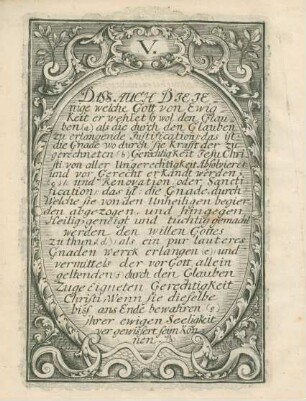 V.
DASS AUCH DIE JE
nige welche Gott von Ewig
Keit erwehlet so wol den Glau
ben (a) als die durch den Glauben
zu erlangende Justification das ist
die Gnade wo durch sie Krafft der zu
gerechneten (b) Gerechtigkeit Jesu Chri
sti von aller Ungerechtigkeit Absolviert
und vor Gerecht erkandt werden
(c) und Renovation oder Sancti
fication das ist die Gnade durch
Welche sie von den Unheiligen begier
den abgezogen und hingegen
Heilig geneigt und tüchtig gemacht
werden den willen Gottes
zu thun (d) als ein pur lauteres
Gnaden werck erlangen (e) und
vermittels der vor Gott allein
geltenden (f) durch den Glauben
Zuge Eigneten Gerechtigkeit
Christi Wenn sie dieselbe
biss ans Ende bewahren (g)
ihrer ewigen Seeligkeit
vergewissert seyn kön
nen